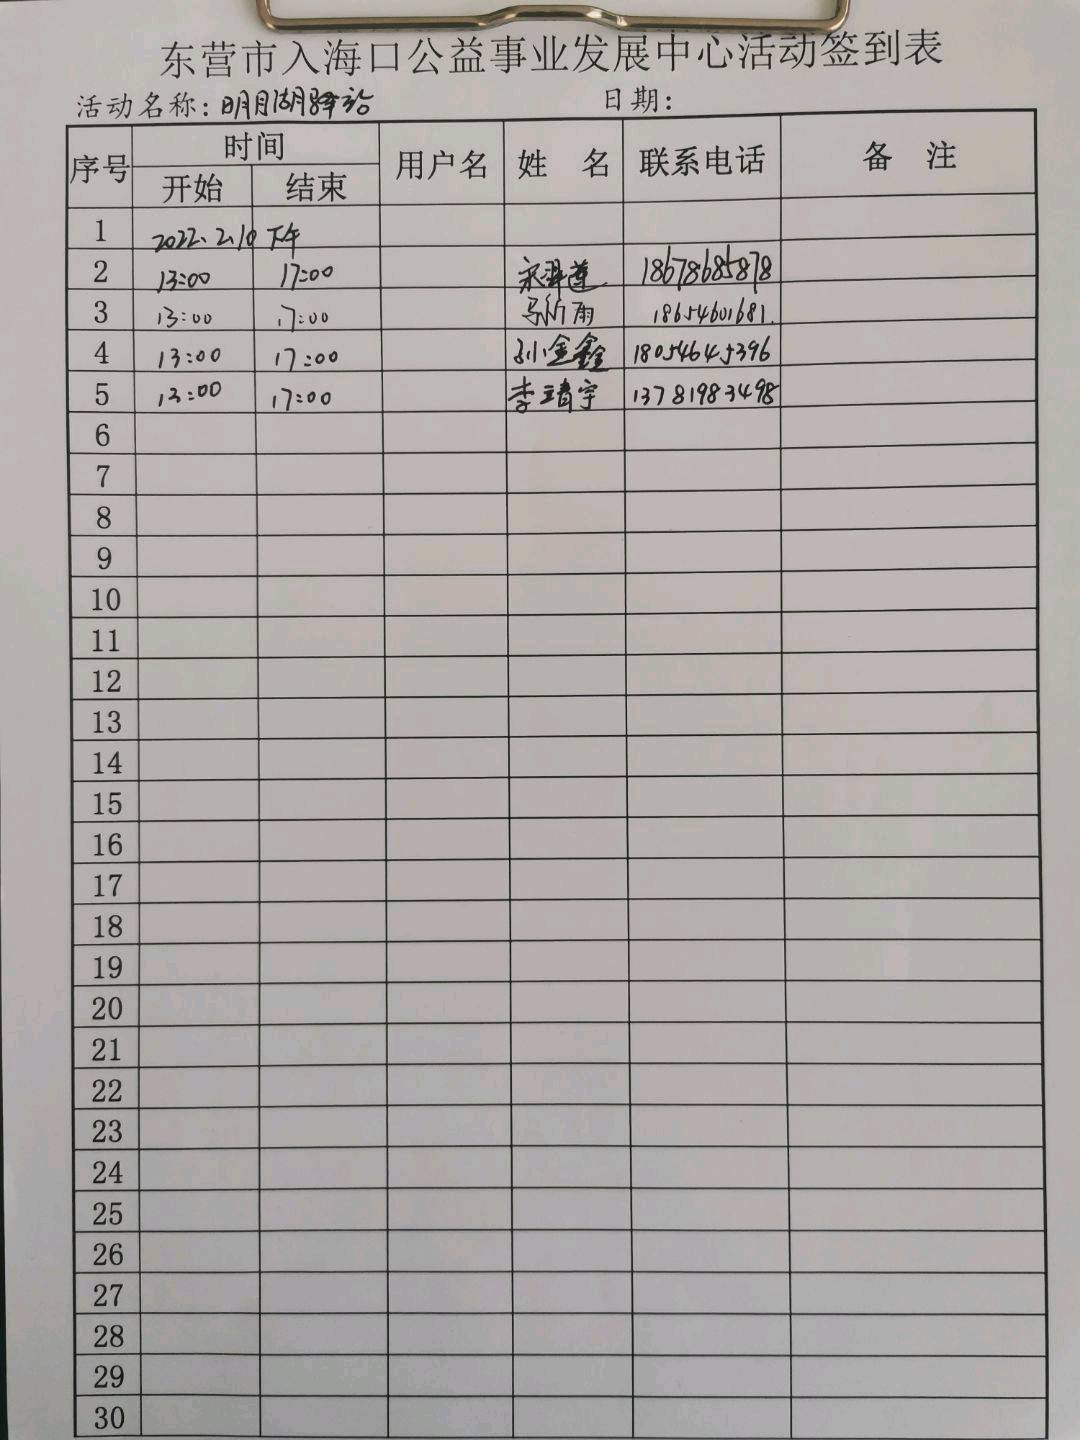 东营市入海口公益事业发展中心活动签到表
活动名称：明月湖驿站 日期：
序号 时间 用户名 姓 名 联系电话 备 注
开始 结束
1 2022.2.10 下午
2 13:00 17:00 18678685878
3 13:00 17:00 18654601681.
4 13:00 17:00 孙金鑫 18054645396
5 13:00 17:00 李靖宇 13781983498
6
7
8
9
10
11
12
13
14
15
16
17
18
19
20
21
22
23
24
25
26
27
28
29
30